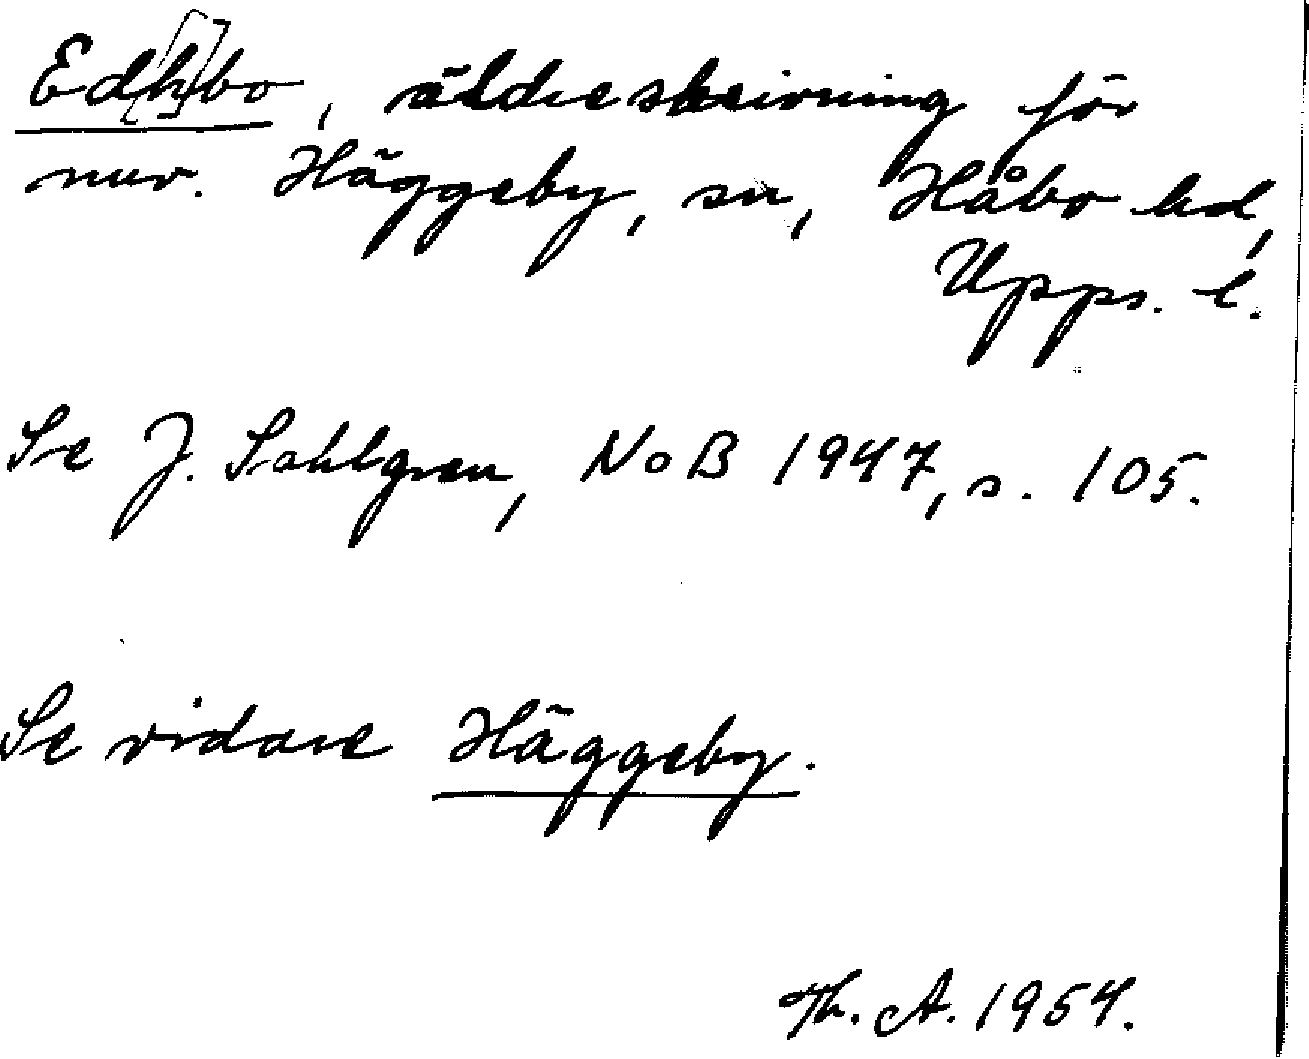 Ed[h]bo, äldre skrivning för
nuv. Häggeby, sn, Håbo hd,
Upps. l.
Se J. Sahlgren, NoB 1947, s. 105.
Se vidare Häggeby.
Th. A. 1954.